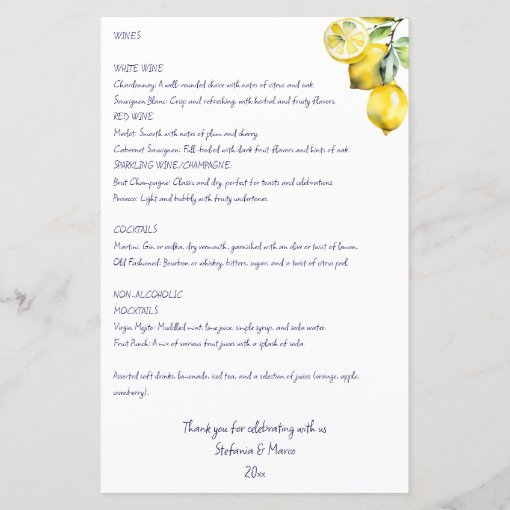 WINES
WHITE WINE
Chardonnay: A well-rounded choice with notes of citrus and oak.
Sauvignon Blanc: Crisp and refreshing, with herbal and fruity flavors.
RED WINE
Merlot: Smooth with notes of plum and cherry.
Cabernet Sauvignon: Full-bodied with dark fruit flavors and hints of oak.
SPARKLING WINE/CHAMPAGNE:
Brut Champagne: Classic and dry, perfect for toasts and celebrations.
Prosecco: Light and bubbly with fruity undertones.
COCKTAILS
Martini: Gin or vodka, dry vermouth, garnished with an olive or twist of lemon.
Old Fashioned: Bourbon or whiskey, bitters, sugar, and a twist of citrus peel.
NON-ALCOHOLIC
MOCKTAILS
Virgin Mojito: Muddled mint, lime juice, simple syrup, and soda water.
Fruit Punch: A mix of various fruit juices with a splash of soda.
Assorted soft drinks, lemonade, iced tea, and a selection of juices (orange, apple,
cranberry)..
Thank you for celebrating with us
Stefania & Marco
20xx